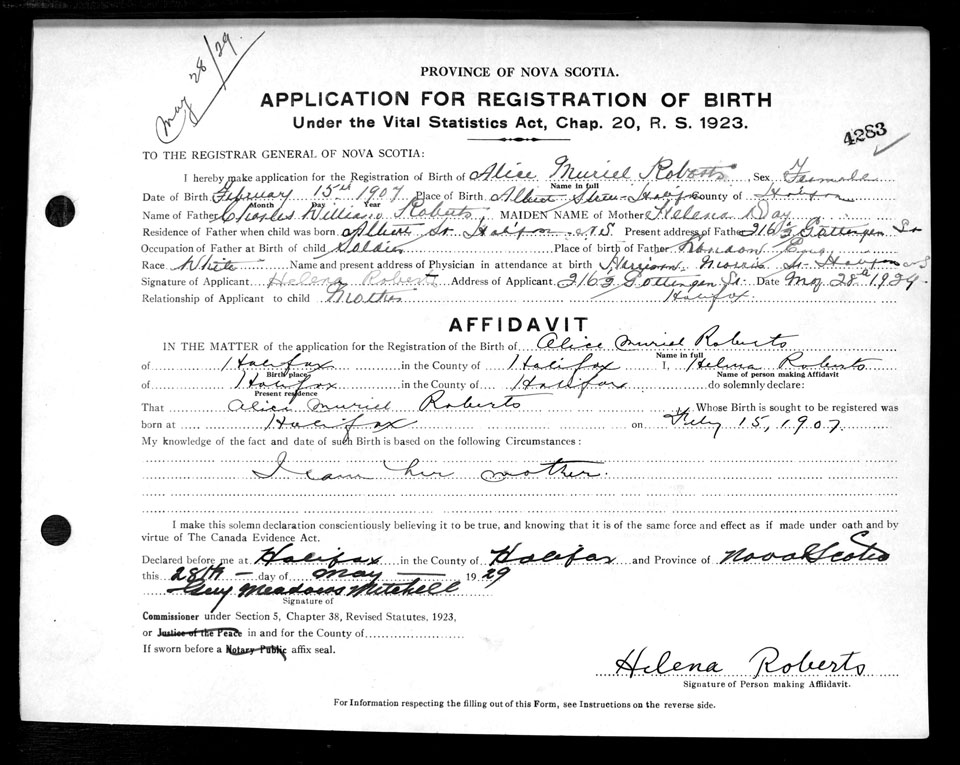 May 28/29.
PROVINCE OF NOVA SCOTIA.
APPLICATION FOR REGISTRATION OF BIRTH
Under the Vital Statistics Act, Chap. 20, R. S. 1923.
4283
TO THE REGISTRAR GENERAL OF NOVA SCOTIA:
I hereby make application for the Registration of Birth of Alice Muriel Roberts Sex Female
Name in full
Date of Birth February 15th 1907 Place of Birth Albert Street Halifax County of Halifax
Month Day Year
Name of Father Charles William Roberts, MAIDEN NAME of Mother Helena Day
Residence of Father when child was born Albert St. Halifax N.S. Present address of Father 216½ Gottingen St
Occupation of Father at Birth of child Soldier Place of birth of Father London Eng
Race White Name and present address of Physician in attendance at birth Morris St. Halifax N S
Signature of Applicant Helena Roberts Address of Applicant 216½ Gottingen St. Date May 28th 1929
Relationship of Applicant to child Mother Halifax
AFFIDAVIT
IN THE MATTER of the application for the Registration of the Birth of Alice Muriel Roberts
Name in full
of Halifax in the County of Halifax I, Helena Roberts
Birth place Name of person making Affidavit
of Halifax in the County of Halifax do solemnly declare:
Present residence
That Alice Muriel Roberts Whose Birth is sought to be registered was
born at Halifax on Feby 15, 1907.
My knowledge of the fact and date of such Birth is based on the following Circumstances:
I am her mother.
I make this solemn declaration conscientiously believing it to be true, and knowing that it is of the same force and effect as if made under oath and by
virtue of The Canada Evidence Act.
Declared before me at Halifax in the County of Halifax and Province of Nova Scotia
this 28th day of May 1929
Guy Meadows Mitchell
Signature of
Commissioner under Section 5, Chapter 38, Revised Statutes. 1923,
or Justice of the Peace in and for the County of
If sworn before a Notary Public affix seal.
Helena Roberts
Signature of Person making Affidavit.
For Information respecting the filling out of this Form, see Instructions on the reverse side.